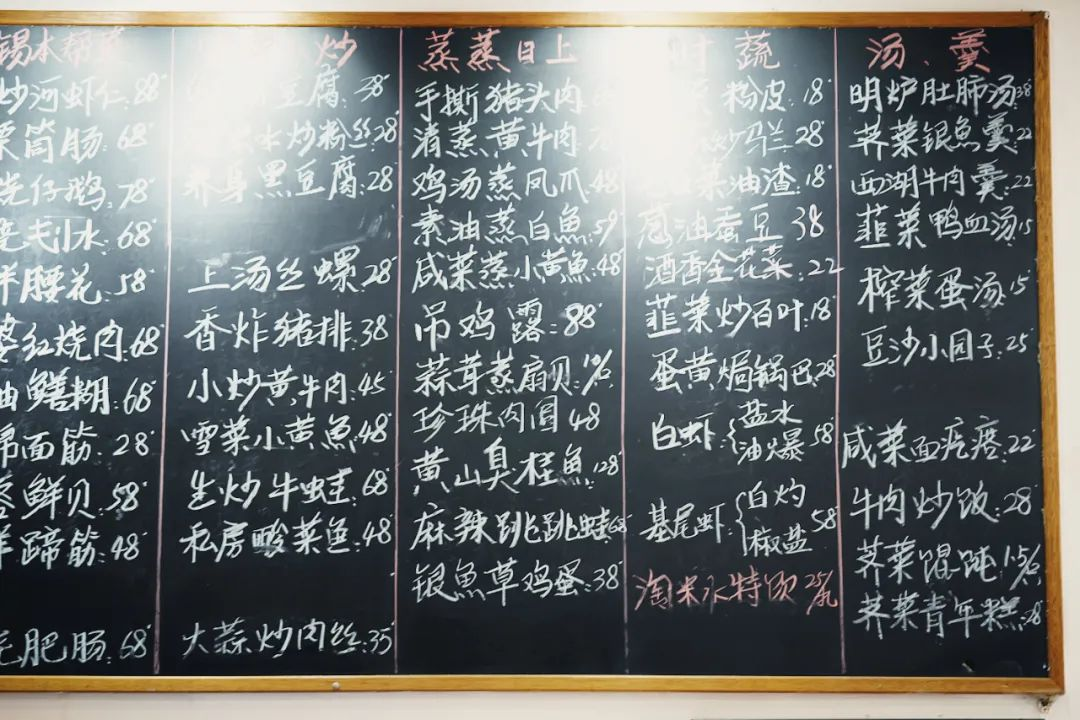 锡本帮菜
炒河虾仁:88
筒肠:68
仔鹅:78
水:68
腰花:58
红烧肉:68
油鳝糊:68
面筋:28
鲜贝:58
蹄筋:48
肥肠:68
炒
豆腐:38
水炒粉丝:28
养身黑豆腐:28
上汤丝螺:28
香炸猪排:38
小炒黄牛肉:45
雪菜小黄魚:48
生炒牛蛙:68
私房酸菜鱼:48
大蒜炒肉丝:35
蒸蒸日上
手撕猪头肉
清蒸黄牛肉
鸡汤蒸凤爪:48
素油蒸白魚:59
咸菜蒸小黄魚:48
吊鸡露:88
蒜茸蒸扇贝:10/6
珍珠肉圆48
黄山臭桂魚:128
麻辣跳跳蛙68
银魚草鸡蛋:38
时蔬
粉皮:18
炒马兰:28
菜油渣:18
葱油蚕豆38
酒香全花菜:22
韮菜炒百叶:18
蛋黄焗锅巴:28
白虾:盐水 油爆 58
基尾虾:白灼 椒盐 58
淘米水特饮 25/瓶
汤、羹
明炉肚肺汤:38
荠菜银魚羹:22
西湖牛肉羹:22
韮菜鸭血汤:15
榨菜蛋汤:15
豆沙小园子:25
咸菜面疙瘩:22
牛肉炒饭:28
荠菜馄饨:1.5/6
荠菜青年糕:28